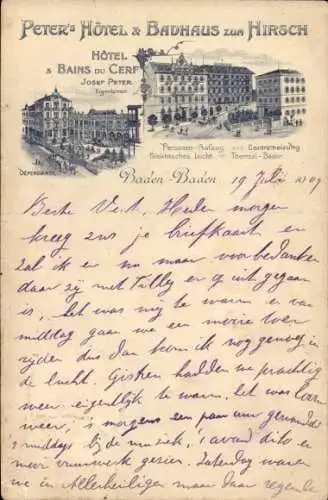 PETER'S HÔTEL & BADHAUS ZUM HIRSCH
HÔTEL
& BAINS DU CERF
JOSEF PETER
Eigentümer
DÉPENDANCE
Personen-Aufzug
Elektrisches Licht
Thermal-Bäder
Baden-Baden 19 Juli 1909
Beste Heden morgen
kreeg ik je briefkaart en
zal ik er nu maar voor bedanken
daar zij met Tilley er op uit gegaan
is. Het was mij te warm en van
middag gaan we een mooie toer
rijden dus dan kom ik nog genoeg in
de lucht. Gisteren hadden we prachtig
weer eigenlijk te warm. Het was
weer, 's morgens een paar uur gewandeld
's middags bij de muziek, 's avond dito en
mooi vuurwerk gezien. Zaterdag waren
we in Allerheiligen maar daar regende